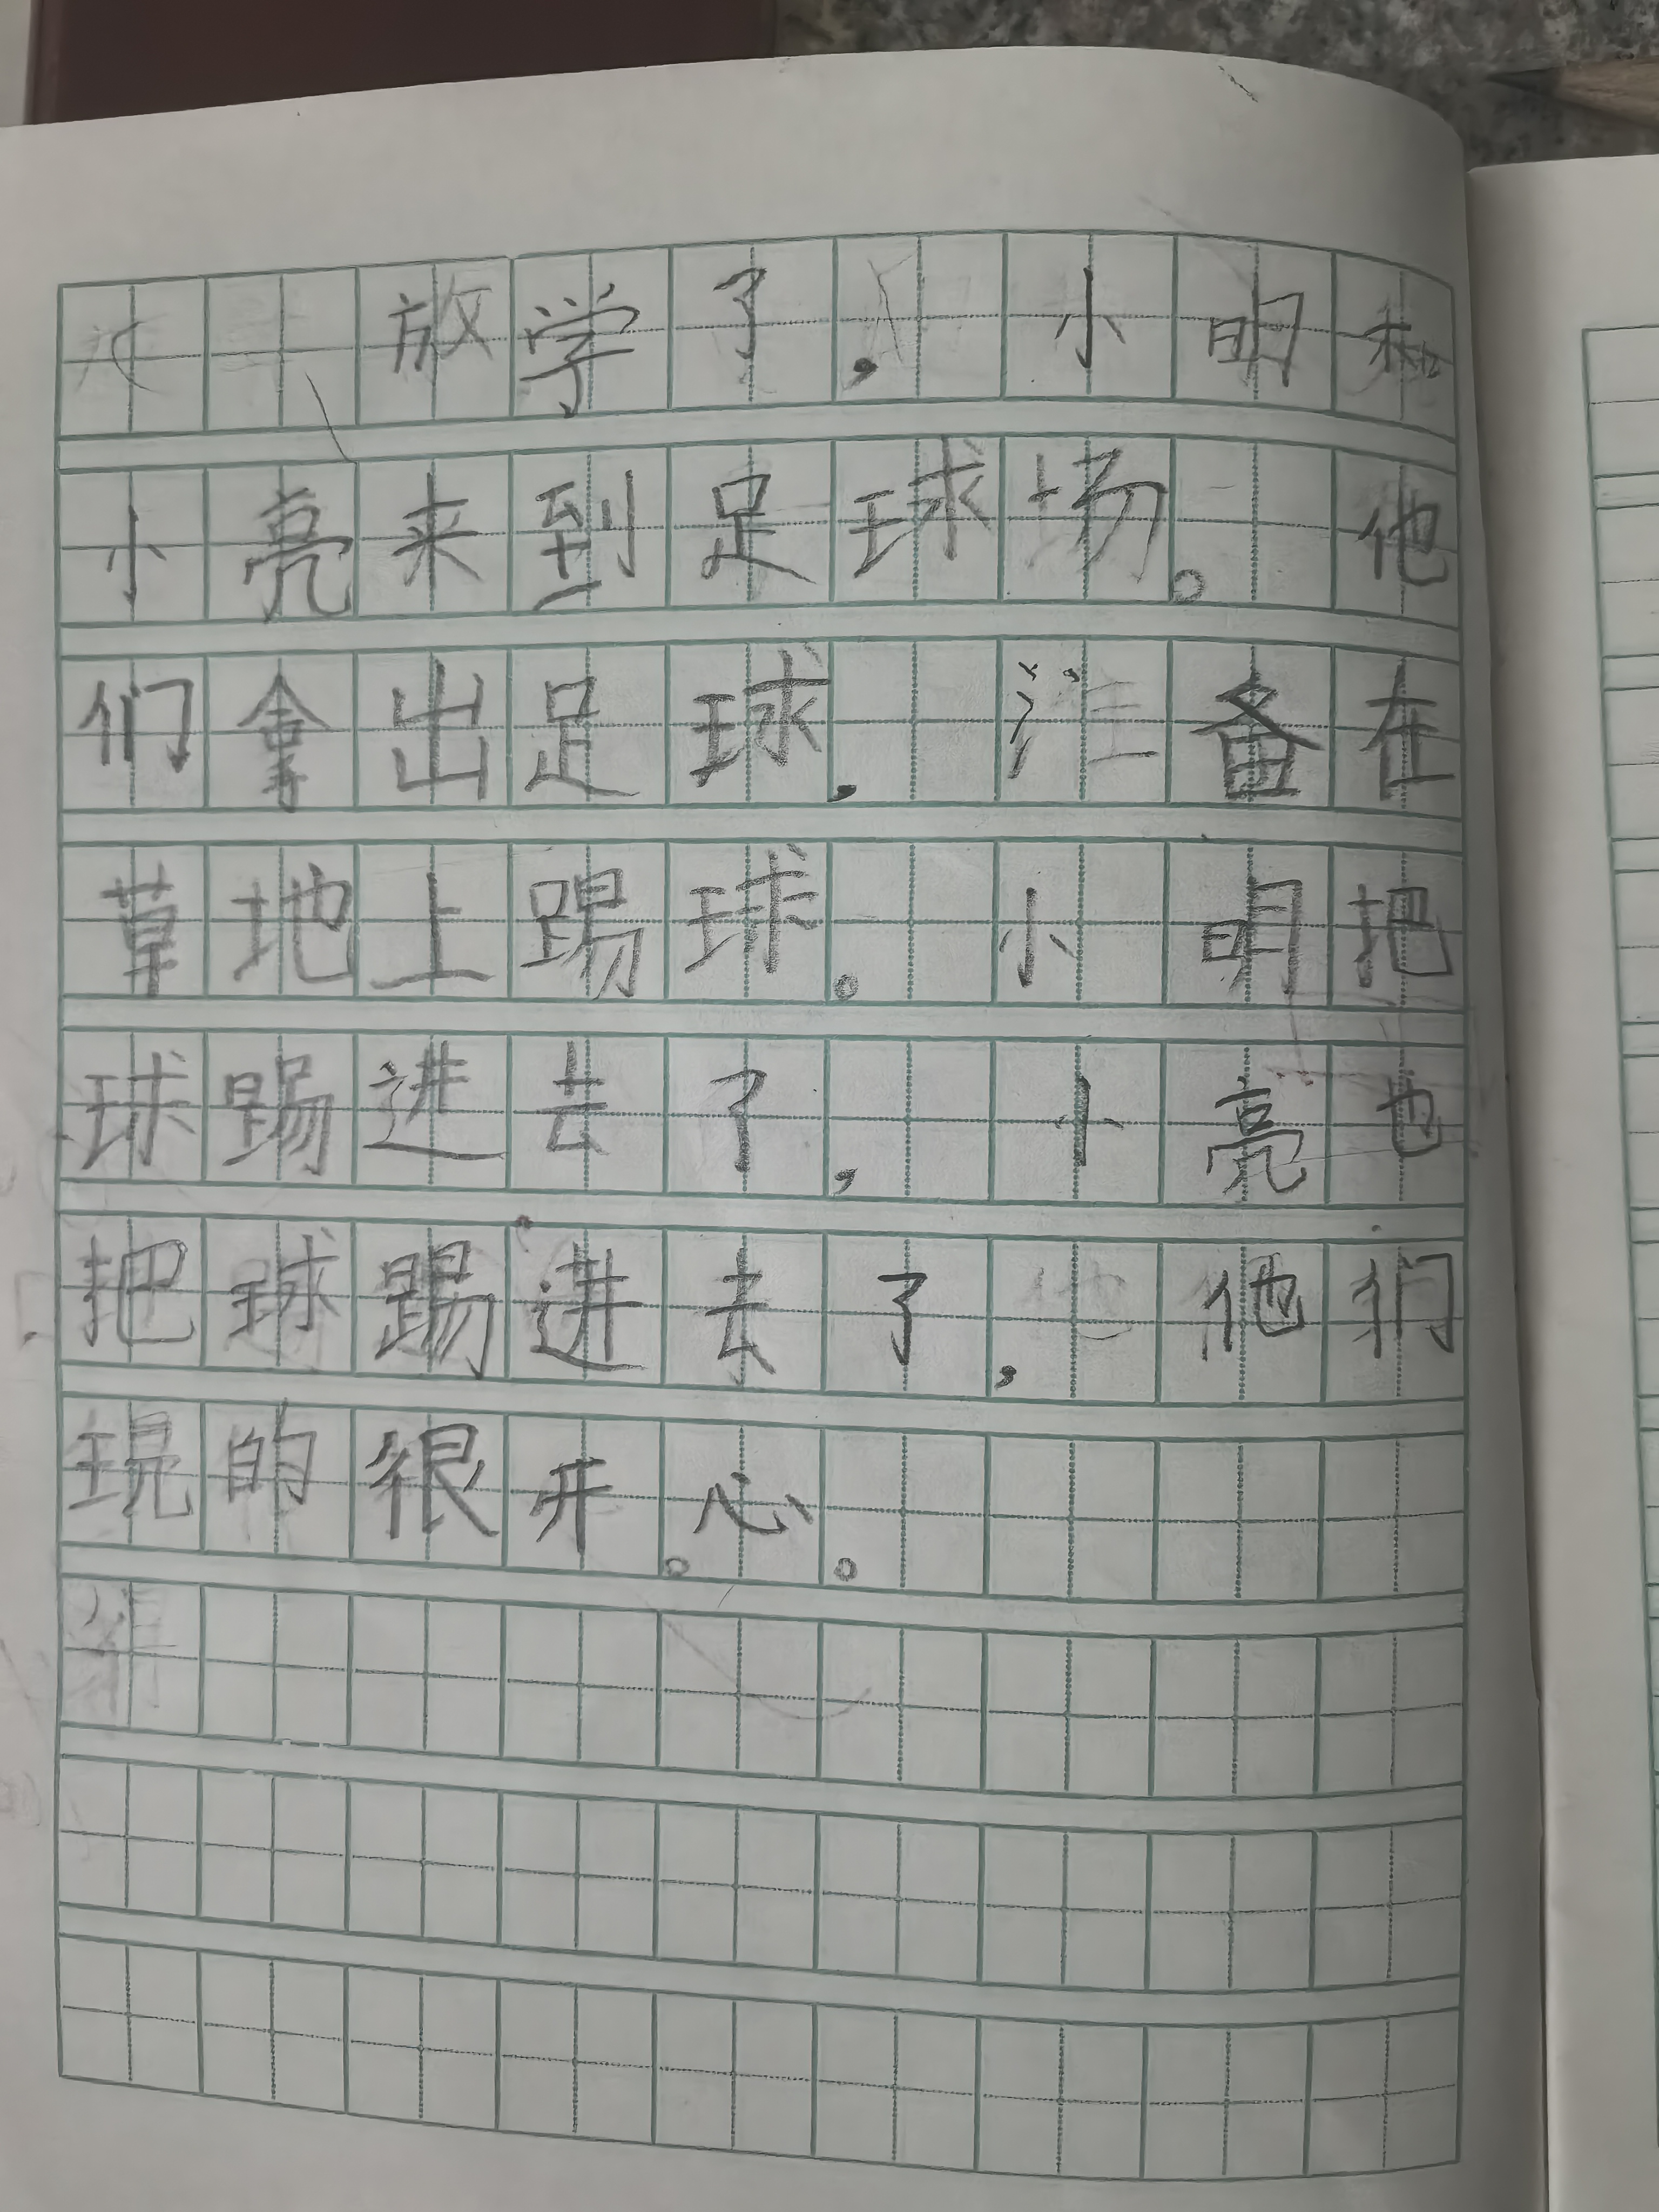 放学了，小明和
小亮来到足球场。他
们拿出足球，准备在
草地上踢球。小明把
球踢进去了，小亮也
把球踢进去了，他们
的很开心。